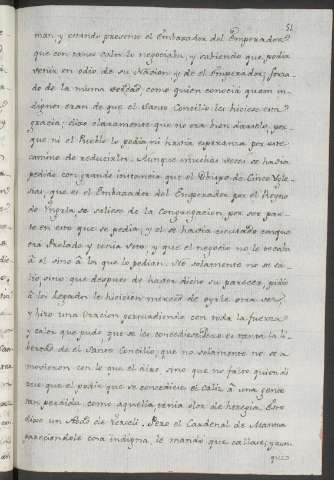 51
man, y estando presente el Embaxador del Emperador
que con tanto calor lo negociaba, y sabiendo que podia
venir en odio de su Nacion, y de el Emperador; forza-
do de la misma verdad como quien conocia quan in-
dignos eran de que el Santo Concilio les hiciese esta
gracia; dixo claramente que no era bien darselo, por-
que ni el Pueblo lo pedia, ni havia esperanza por este
camino de reducirlos. Aunque muchas veces se havia
pedido con grande instancia que el Obispo de Cinco Ygle-
sias, que es el Embaxador del Emperador por el Reyno
de Ungria se saliese de la Congregacion, por ser par-
te en esto que se pedia; y el se havia escusado con que
era Prelado, y tenia voto; y que el negocio no le tocaba
â el sino â los que lo pedian. No solamente no se sa-
lio, sino que despues de haver dicho su parecer, pidio
â los Legados le hiciesen merced de oyrle otra vez,
y hizo una Oracion persuadiendo con toda la fuerza
y calor que pudo que se les concediese. Pero es tanta la li-
bertad de el Santo Concilio, que no solamente no se
movieron con lo que el dixo, sino que no falto quien di-
xese que el pedir que se concediese el Caliz â una gente
tan perdida como aquella, tenia olor de heregia. Esto
dixo un Abad de Verceli. Pero el Cardenal de Mantua
pareciendole cosa indigna, le mando que callase; y aun
que